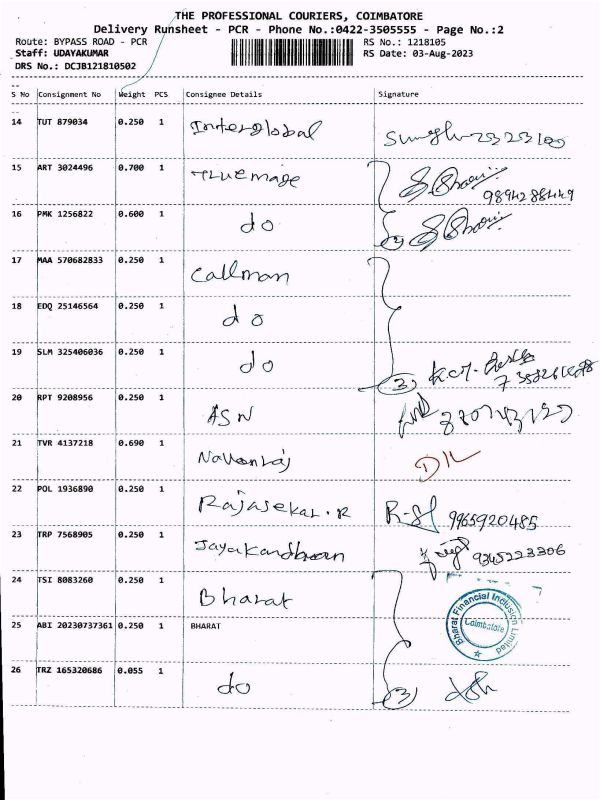 THE PROFESSIONAL COURIERS, COIMBATORE
Delivery Runsheet - PCR - Phone No.:0422-3505555 - Page No.:2
Route: BYPASS ROAD - PCR RS No.: 1218105
Staff: UDAYAKUMAR RS Date: 03-Aug-2023
DRS No.: DCJB121810502
S No Consignment No Weight PCS Consignee Details Signature
14 TUT 879034 0.250 1 Interglobal
15 ART 3024496 0.700 1 Truemage 9894288449
16 PMK 1256822 0.600 1 do
17 MAA 570682833 0.250 1 Callman
18 EDQ 25146564 0.250 1 do
19 SLM 325406036 0.250 1 do 3
20 RPT 9208956 0.250 1 ASN
21 TVR 4137218 0.690 1
22 POL 1936890 0.250 1 Rajasekar.R 9965920485
23 TRP 7568905 0.250 1 9345223306
24 TSI 8083260 0.250 1 Bharat
Bharat Financial Inclusion Limited
Coimbatore
25 ABI 20230737361 0.250 1 BHARAT
26 TRZ 165320686 0.055 1 do 3